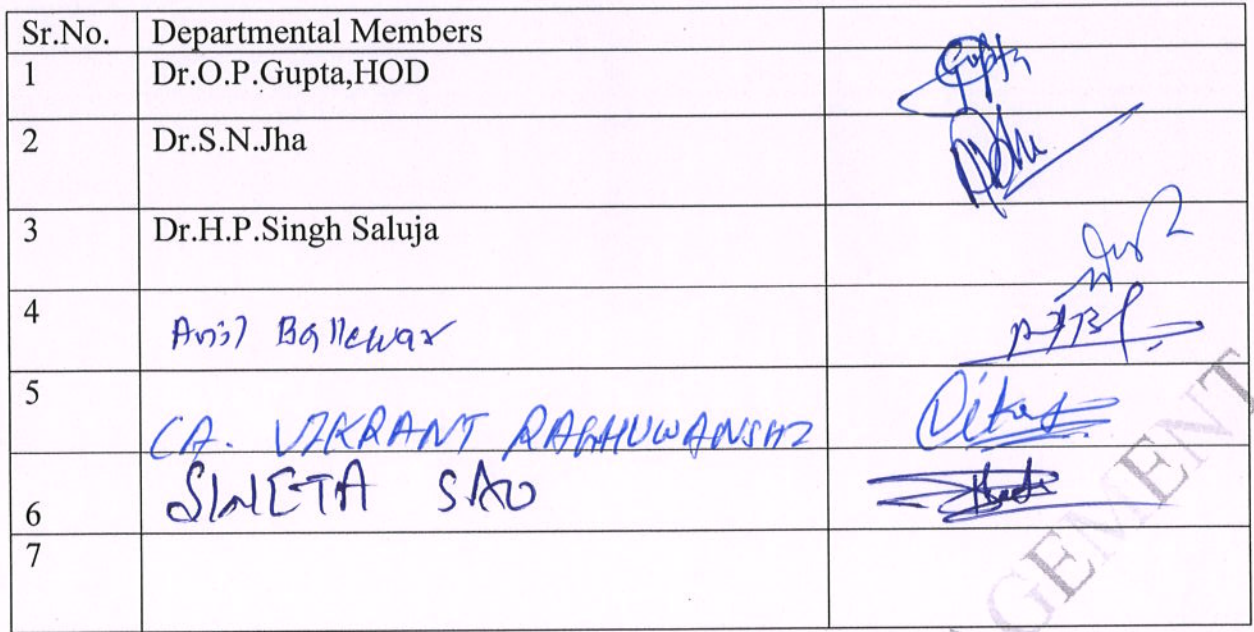 Sr.No. Departmental Members
1 Dr.O.P.Gupta,HOD Gupta
2 Dr.S.N.Jha
3 Dr.H.P.Singh Saluja
4 Anil Ballewar
5 CA. VIKRANT RAGHUWANSHI
6 SWETA SAO
7